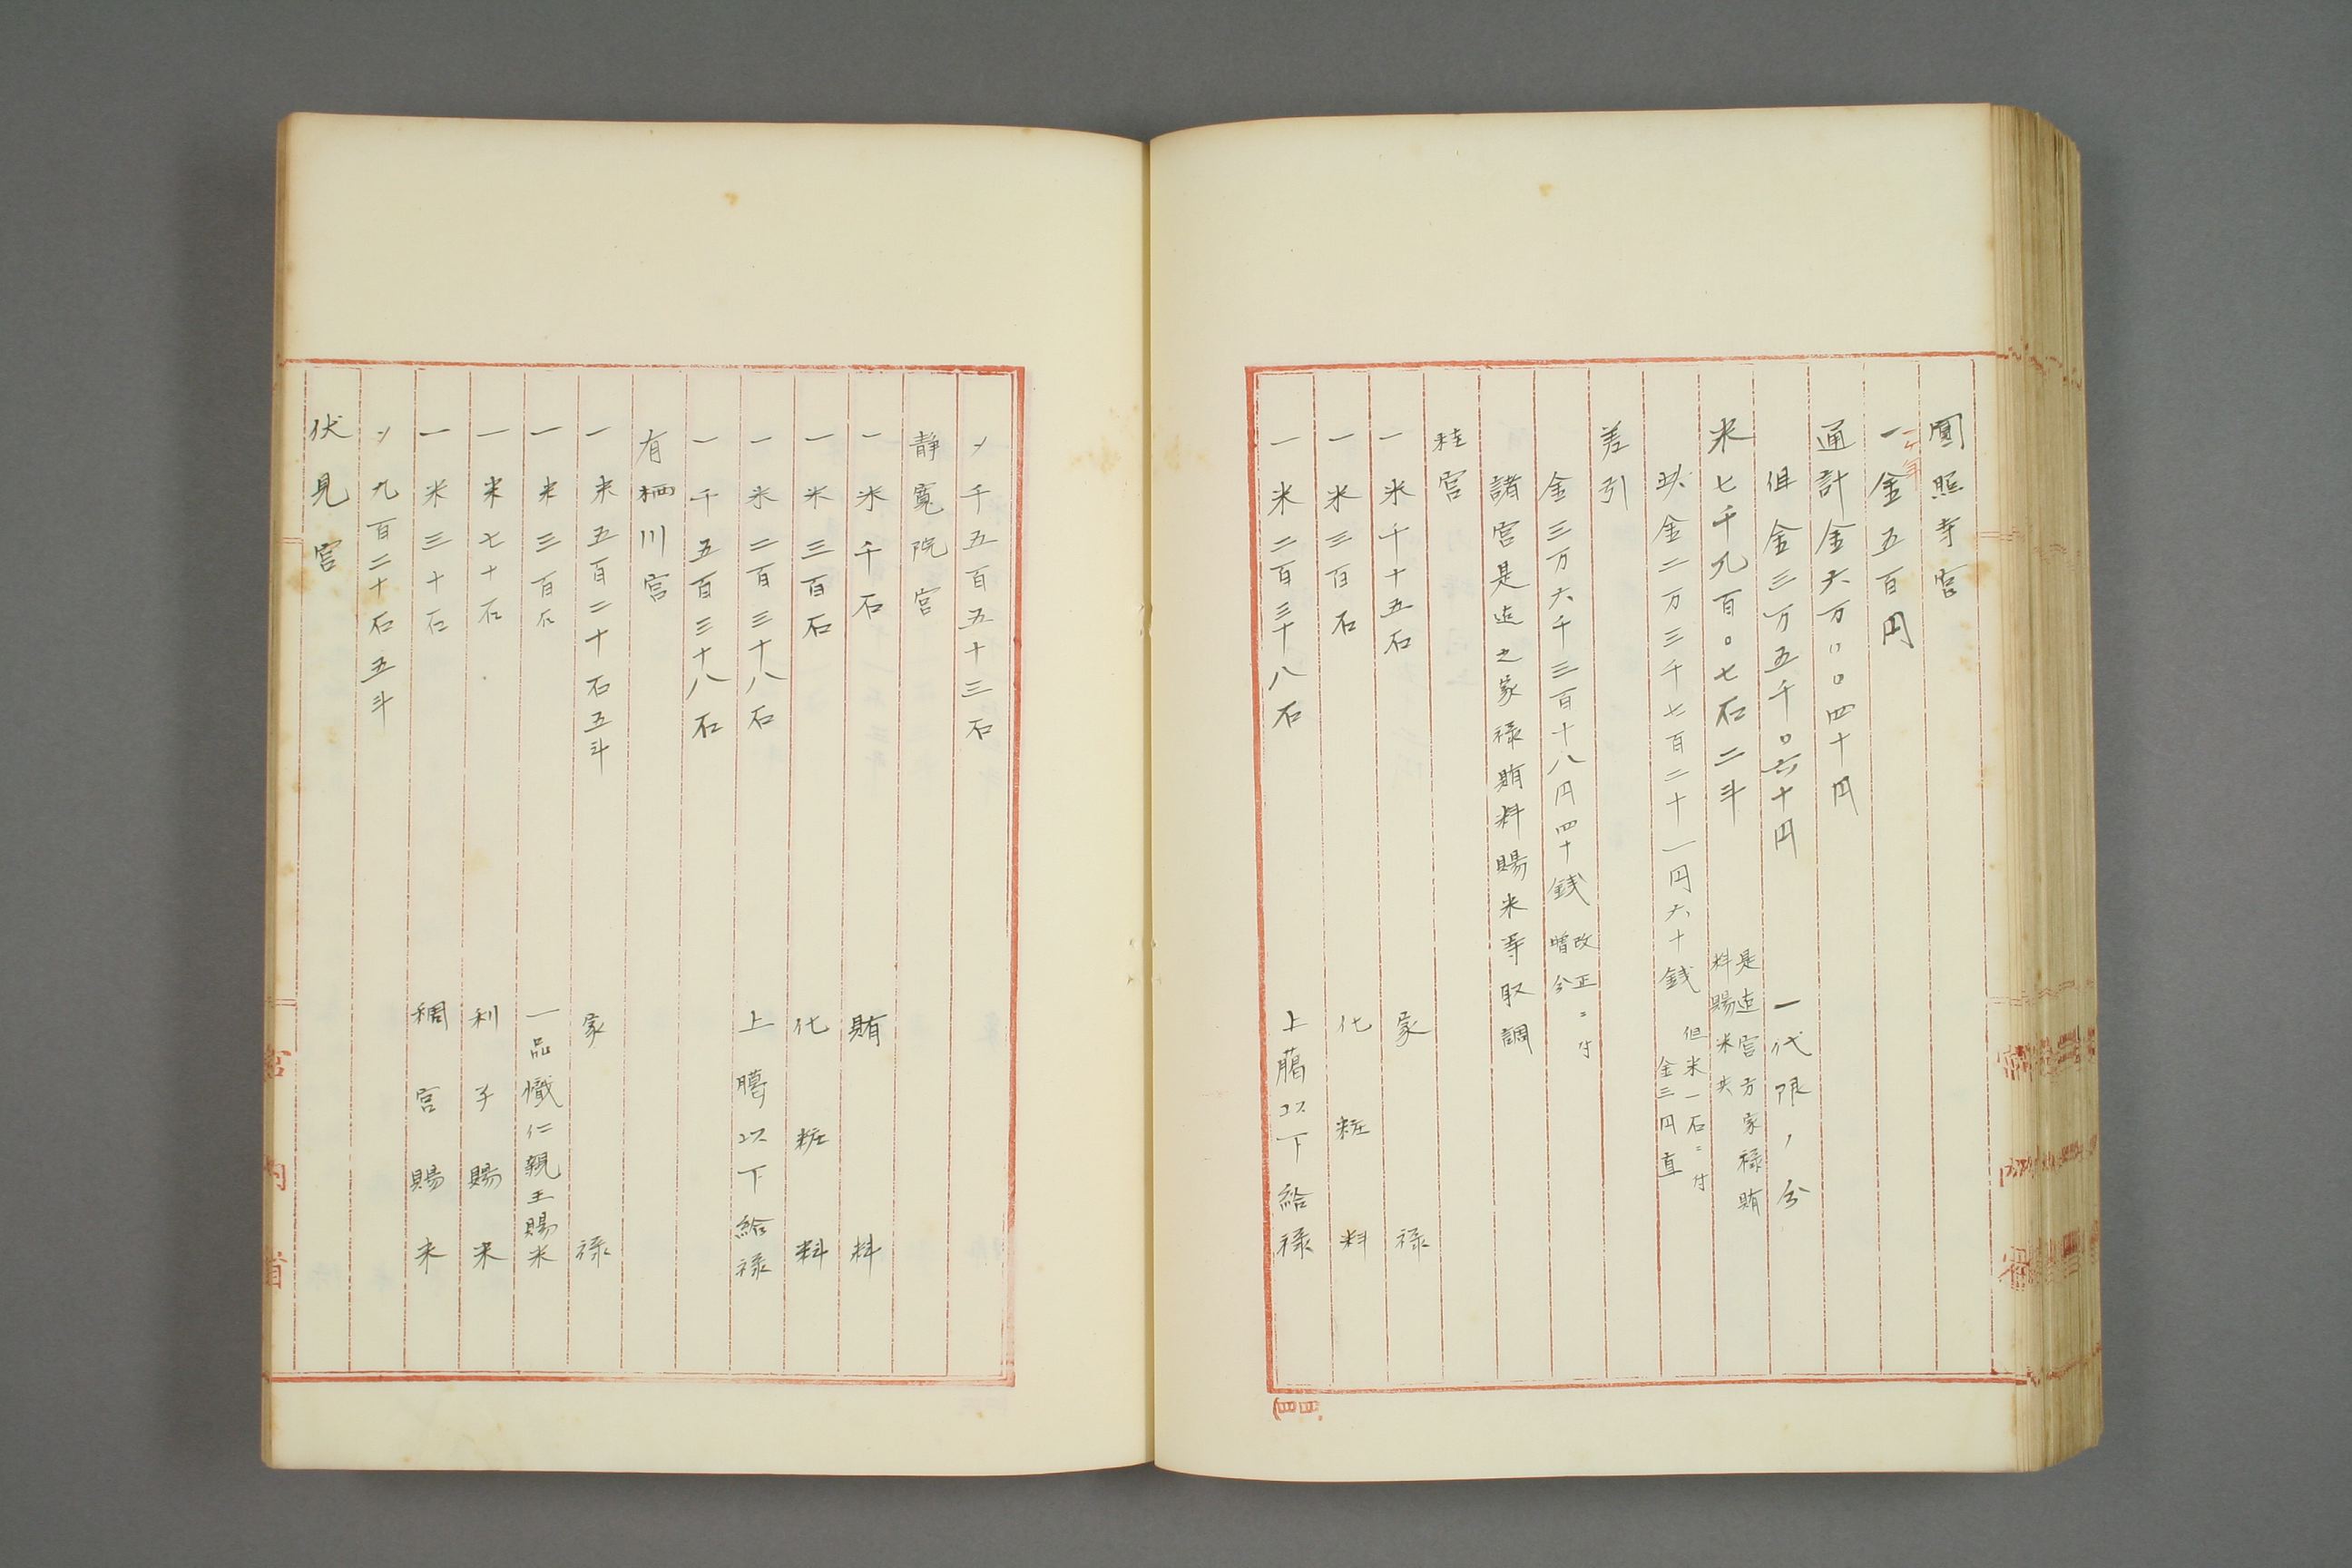 圓照寺宮
一ヶ年
一金五百円
通計金六万〇〇四十円
但金三万五千〇六十円 一代限ノ分
米七千九百〇七石二斗 是迠宮方家禄賄
料賜米共
此金二万三千七百二十一円六十銭 但米一石ニ付
金三円直
差引
金三万六千三百十八円四十銭 改正ニ付
増分
諸宮是迠之家禄賄料賜米等取調
桂宮
一米千十五石 家禄
一米三百石 化粧料
一米二百三十八石 上臈以下給禄
〆千五百五十三石
静寛院宮
一米千石 賄料
一米三百石 化粧料
一米二百三十八石 上臈以下給禄
一千五百三十八石
有栖川宮
一米五百二十石五斗 家禄
一米三百石 一品幟仁親王賜米
一米七十石 利子賜米
一米三十石 稠宮賜米
〆九百二十石五斗
伏見宮
宮内省